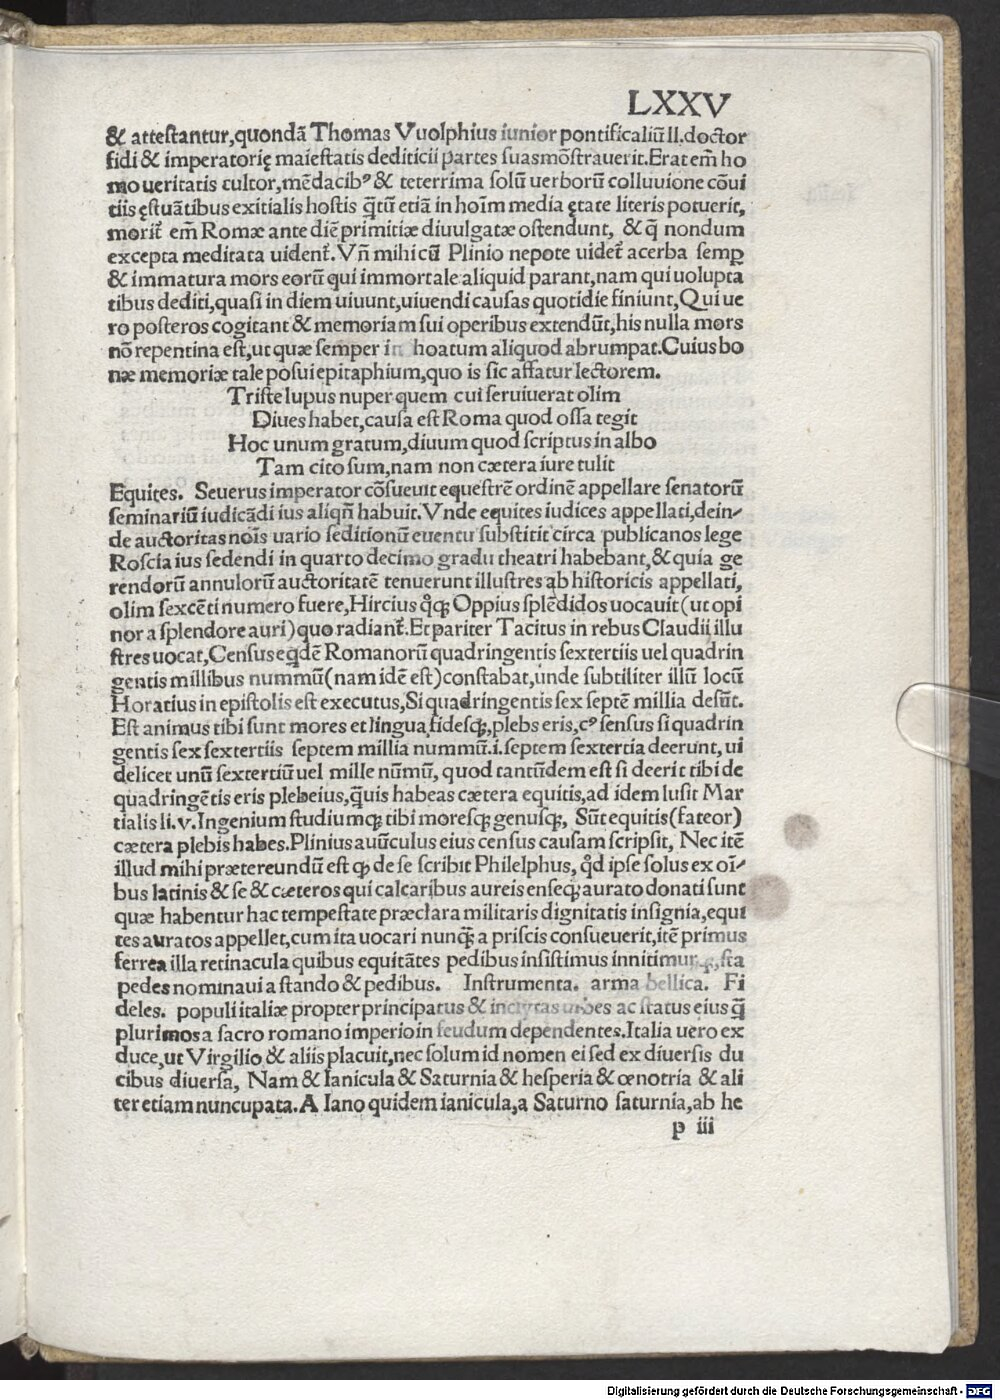 LXXV
& attestantur,quondā Thomas Vuolphius iunior pontificaliū ll.doctor
fidi & imperatorię maiestatis dediticii partes suas mōstrauerit.Erat em̄ ho
mo ueritatis cultor,mēdacibꝰ & teterrima solū uerborū colluuione cōui
tiis ęstuātibus exitialis hostis q̄tū etiā in hoīm media ętate literis potuerit,
morit̄ em̄ Romæ ante diē primitiæ diuulgatæ ostendunt, & q̄ nondum
excepta meditata uident̄. Vn̄ mihi cū Plinio nepote uidet̄ acerba semꝑ
& immatura mors eorū qui immortale aliquid parant,nam qui uolupta
tibus dediti,quasi in diem uiuunt,uiuendi causas quotidie finiunt,Qui ue
ro posteros cogitant & memoriam sui operibus extendūt,his nulla mors
nō repentina est,ut quæ semper in hoatum aliquod abrumpat.Cuius bo
næ memoriæ tale posui epitaphium,quo is sic affatur lectorem.
Triste lupus nuper quem cui seruiuerat olim
Diues habet,causa est Roma quod ossa tegit
Hoc unum gratum,diuum quod scriptus in albo
Tam cito sum,nam non cætera iure tulit
Equites. Seuerus imperator cōsueuit equestrē ordinē appellare senatorū
seminariū iudicādi ius aliqn̄ habuit.Vnde equites iudices appellati,dein-
de auctoritas noīs uario seditionū euentu substitit circa publicanos lege
Roscia ius sedendi in quarto decimo gradu theatri habebant,& quia ge
rendorū annulorū auctoritatē tenuerunt illustres ab historicis appellati,
olim sexcēti numero fuere,Hircius q̊qꝫ Oppius splēdidos uocauit(ut opi
nor a splendore auri)quo radiant̄.Et pariter Tacitus in rebus Claudii illu
stres uocat,Census eqdē Romanorū quadringentis sextertiis uel quadrin
gentis millibus nummū(nam idē est)constabat,unde subtiliter illū locū
Horatius in epistolis est executus,Si quadringentis sex septē millia desūt.
Est animus tibi sunt mores et lingua,fidesqꝫ,plebs eris,cꝰ sensus si quadrin
gentis sex sextertiis septem millia nummū.i.septem sextertia deerunt,ui
delicet unū sextertiū uel mille nūmū, quod tantūdem est si deerit tibi de
quadringētis eris plebeius,q̄uis habeas cætera equitis,ad idem lusit Mar
tialis li.v.Ingenium studiumqꝫ tibi moresqꝫ genusqꝫ, Sūt equitis(fateor)
cætera plebis habes.Plinius auūculus eius census causam scripsit, Nec itē
illud mihi prætereundū est ꝙ de se scribit Philelphus, q̊d ipse solus ex oī-
bus latinis & se & cæteros qui calcaribus aureis enseqꝫ aurato donati sunt
quæ habentur hac tempestate præclara militaris dignitatis insignia,equi
tes auratos appellet,cum ita uocari nunq̄ꝫ a priscis consueuerit,itē primus
ferrea illa retinacula quibus equitātes pedibus insistimus innitimurqꝫ,sta
pedes nominaui a stando & pedibus. Instrumenta. arma bellica. Fi
deles. populi italiæ propter principatus & inclytas urbes ac status eius q̄
plurimos a sacro romano imperio in feudum dependentes.Italia uero ex
duce,ut Virgilio & aliis placuit,nec solum id nomen ei sed ex diuersis du
cibus diuersa, Nam & Ianicula & Saturnia & hesperia & œnotria & ali
ter etiam nuncupata.A Iano quidem ianicula,a Saturno saturnia,ab he
p iii
Digitalisierung gefördert durch die Deutsche Forschungsgemeinschaft - DFG